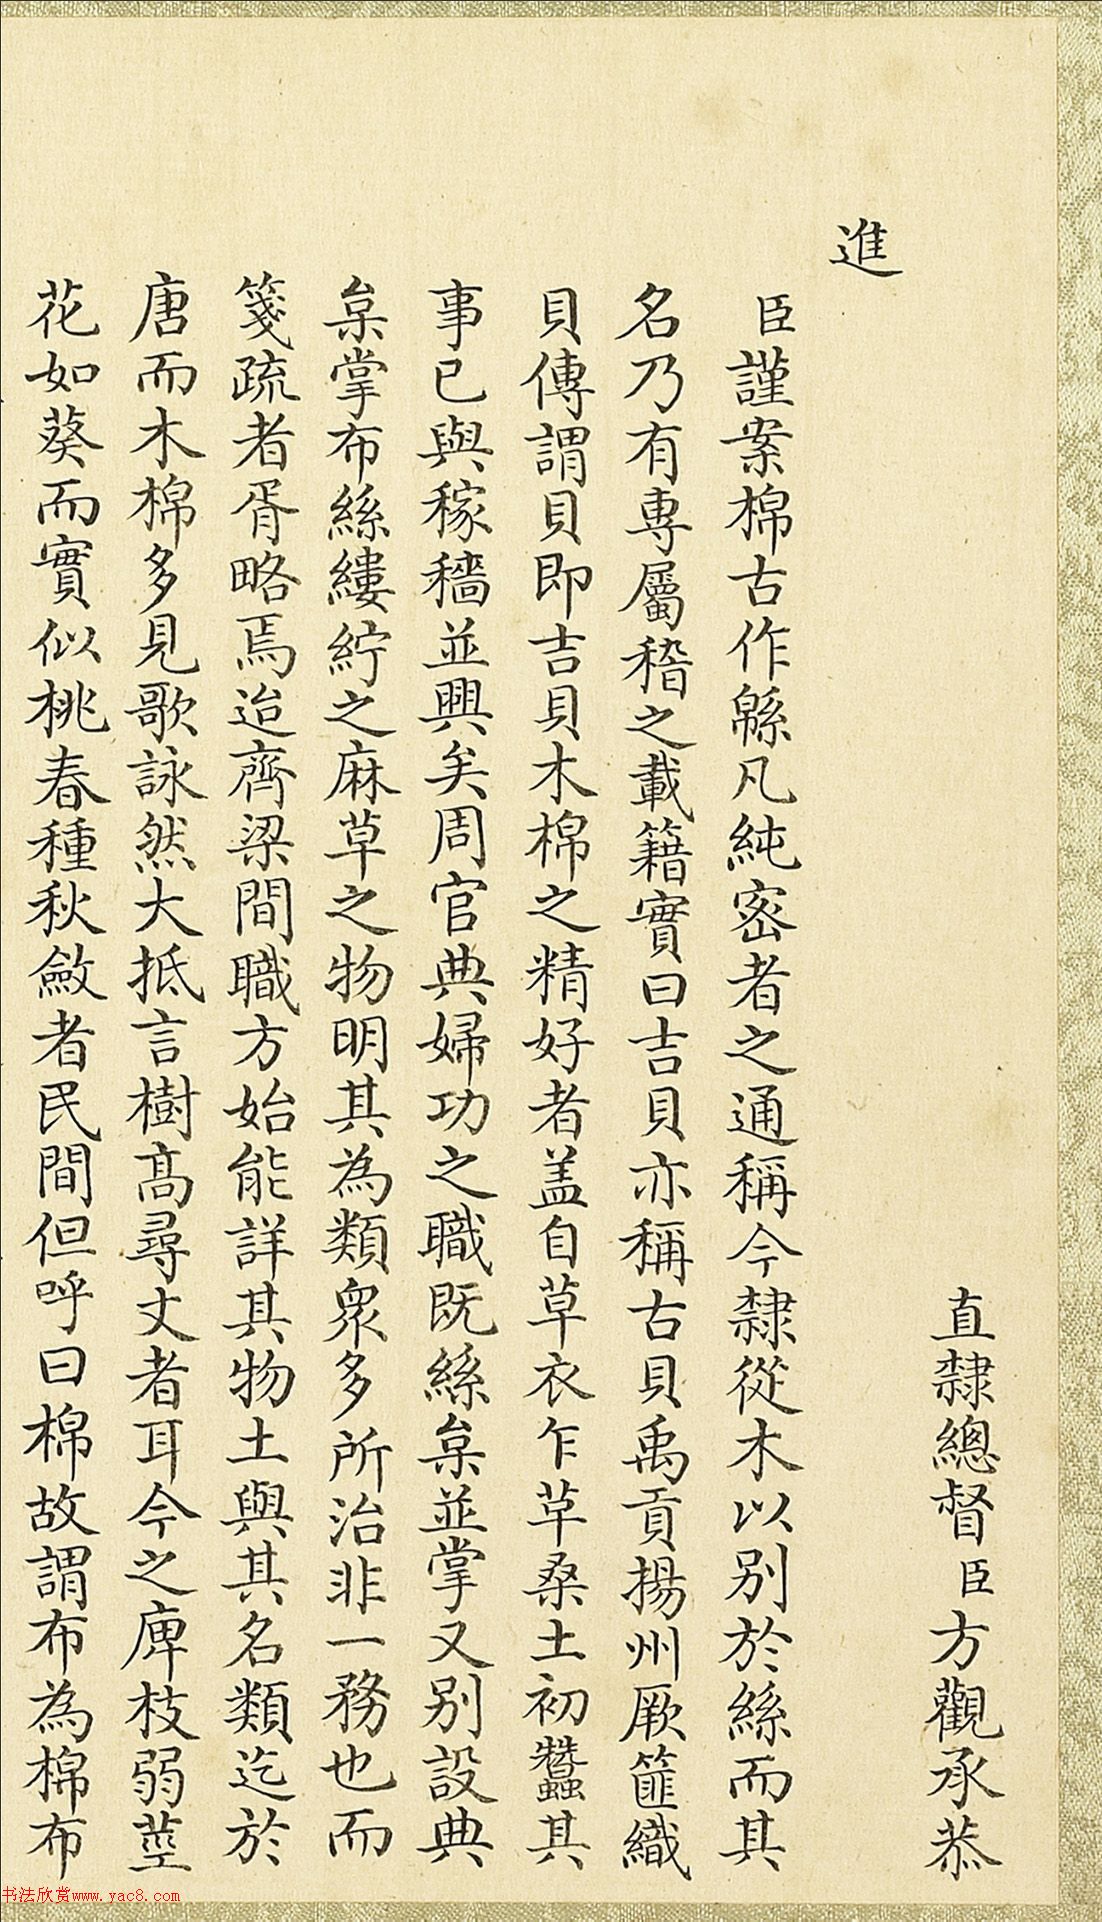 直隸總督臣方觀承恭
進
臣謹案棉古作緜凡純密者之通稱今隸從木以别於絲而其
名乃有專屬稽之載籍實曰吉貝亦稱古貝禹貢揚州厥篚織
貝傳謂貝即吉貝木棉之精好者盖自草衣乍草桑土初蠶其
事已與稼穡並興矣周官典婦功之職既絲枲並掌又别設典
枲掌布絲縷紵之麻草之物明其為類衆多所治非一務也而
箋疏者胥略焉迨齊梁間職方始能詳其物土與其名類迄於
唐而木棉多見歌詠然大抵言樹髙尋丈者耳今之庳枝弱莖
花如葵而實似桃春種秋斂者民間但呼曰棉故謂布為棉布
书法欣赏www.yac8.com